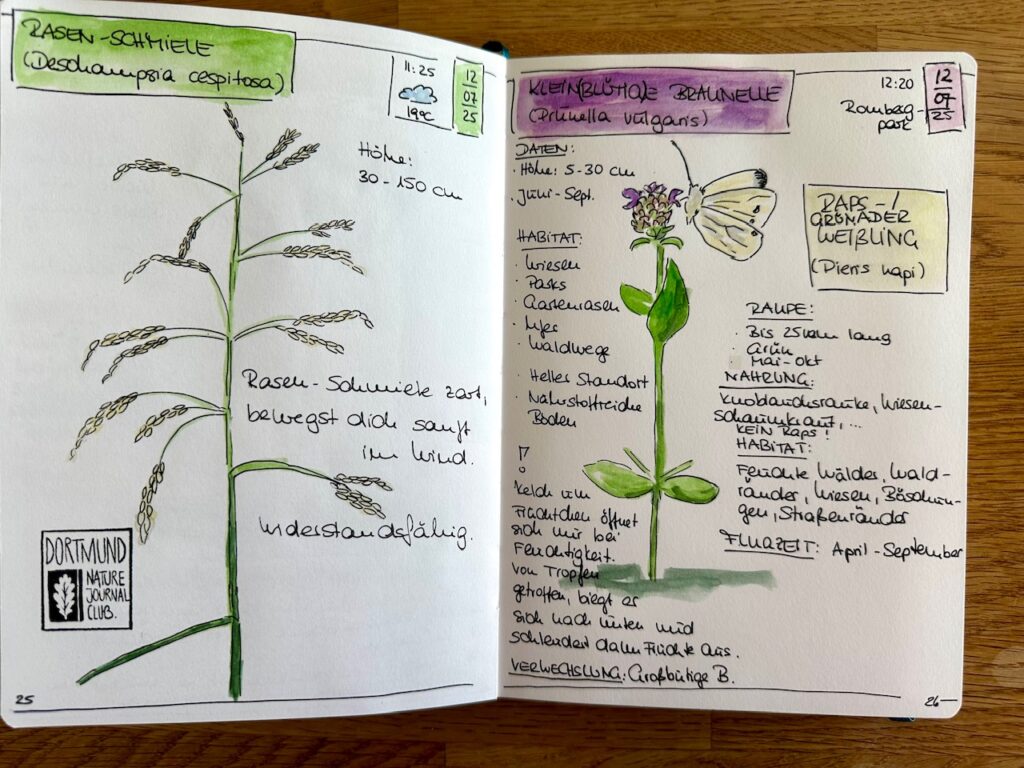 RASEN-SCHMIELE
(Deschampsia cespitosa)
11:25
19°C
12
07
25
Höhe:
30-150 cm
Rasen-Schmiele zart,
bewegst dich sanft
im Wind.
Widerstandsfähig.
DORTMUND
NATURE
JOURNAL
CLUB.
25
KLEIN(BLÜTIG)E BRAUNELLE
(Prunella vulgaris)
12:20
Romberg-
park
12
07
25
DATEN:
· Höhe: 5-30 cm
· Juni-Sept.
HABITAT:
· Wiesen
· Parks
· Gartenrasen
· Ufer
· Waldwege
· Heller Standort
· Nährstoffreiche
Boden
!
Kelch um
Früchtchen öffnet
sich nur bei
Feuchtigkeit.
Von Tropfen
getroffen, biegt er
sich nach unten und
schleudert dann Früchte aus.
VERWECHSLUNG: Großblütige B.
RAPS-/
GRÜNADER
WEIßLING
(Pieris napi)
RAUPE:
· Bis 25mm lang
· Grün
Mai-Okt
NAHRUNG:
Knoblauchsrauke, Wiesen-
schaumkraut, ...
KEIN RAPS!
HABITAT:
Feuchte Wälder, Wald-
ränder, Wiesen, Böschun-
gen, Straßenränder
FLUGZEIT: April-September
26